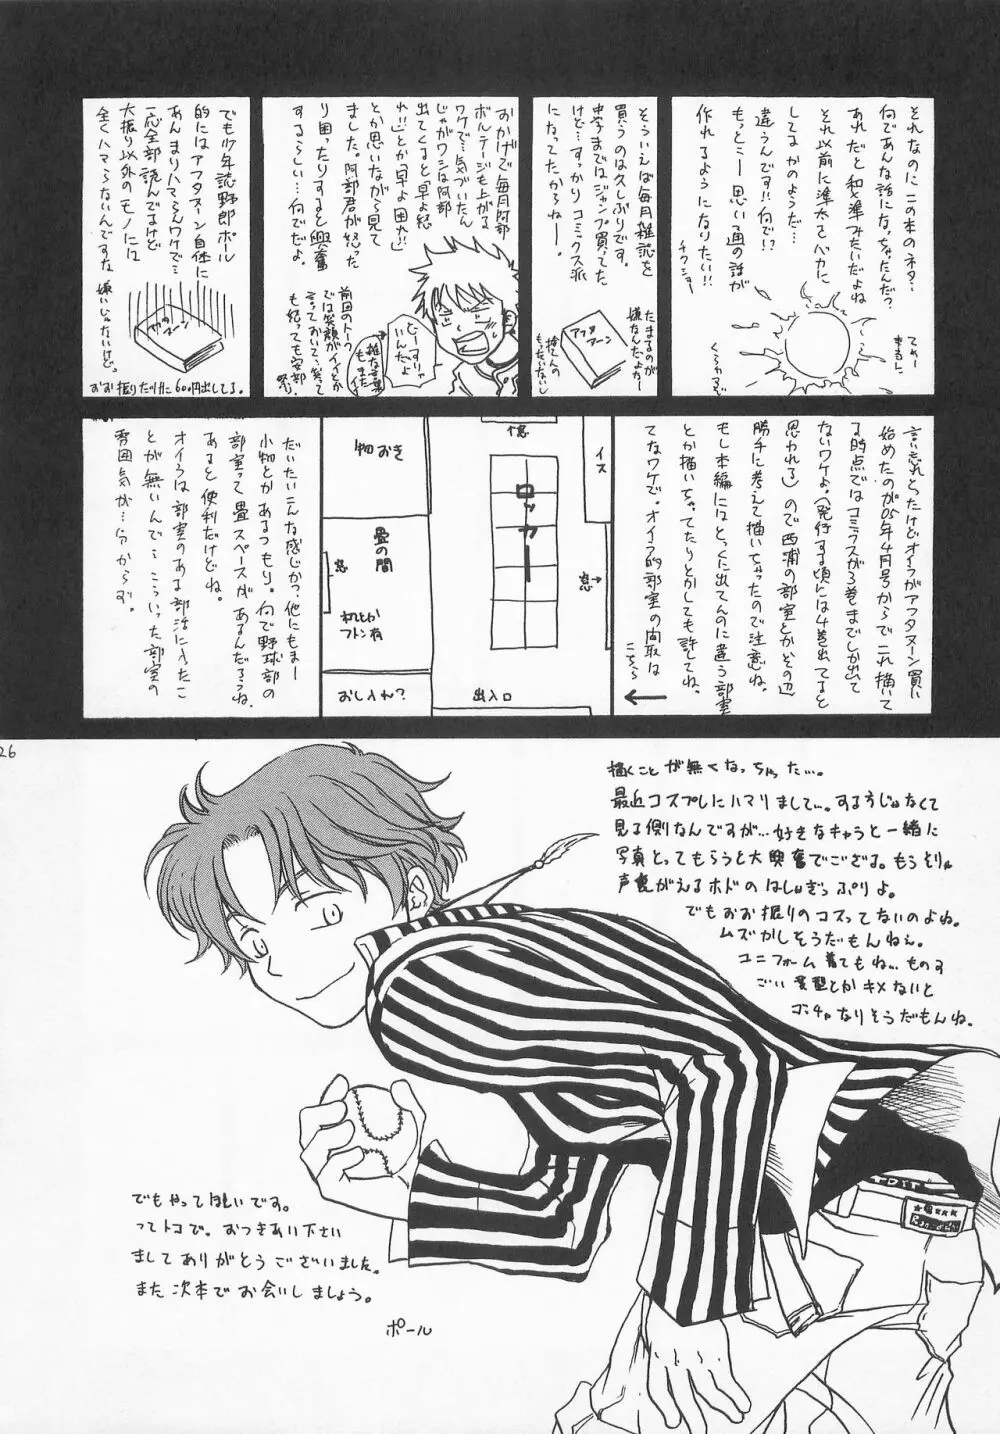 それなのにこの本のネタ…
何であんな話になっちゃたんだ?
あれだと和と準つみたいだよね
それ以前に準太をバカに
してるかのようだ…
違うんです!!何で!?
もっとこー思い通の話が
作れるようになりたい!!
チクショー
てぁー
くらやすで
そういえば毎月雑誌を
買うのは久しぶりです。
中学まではジャンプ買ってた
けど…すっかりコミックス派
になってたからねー。
たまるのが
嫌なんだよねー
捨てんの
もったいないし
アフタ
ヌーン
おかげで毎月阿部
ボルテージも上がる
ワケで…気づいたん
じゃがワシは阿部
出てくると早よ怒
れ!!とか早よ困れ!!
とか思いながら見て
ました。阿部君が怒った
り困ったりすると興奮
するらしい…何でだよ。
前回のトーク
では笑顔がイイとか
言っておいて…笑って
も怒っても安部
祭り
むーすりゃ
いんだよ
でも少年誌野郎ポール
的にはアフタヌーン自体に
あんまりハマらんワケで…
一応全部読んでるけど
大振り以外のモノには
全くハマらないんですな
嫌いじゃないけど。
アフタ
ヌーン
おお振りだけに600円出してる。
言い忘れとったけどオイラがアフタヌーン買い
始めたのが05年4月号からでこれ描いて
る時点ではコミックスが3巻までしか出て
ないワケよ。(発行する頃には4巻出てると
思われる)ので西浦の部室とかその辺
勝手に考えて描いちゃったので注意ね。
もし本編にはとっくに出てんのに違う部室
とか描いちゃってたりとかしても許してね。
てなワケで。オイラ的部室の間取は
こちら
←
イス
窓→
窓
ロッカー
出入口
物おき
畳の間
窓
机とか
フトン有
おし入れ?
だいたいこんな感じかっ他にもまー
小物とかあるつもり。何で野球部の
部室って畳スペースがあるんだろうね。
あると便利だけどね。
オイラは部室のある部活に入ったこ
とが無いんで…こういった部室の
雰囲気が…分からず。
26
描くことが無くなっちゃった…。
最近コスプレにハマりまして…。するうじゃなくて
見る側なんですが…好きなキャラと一緒に
写真とってもらうと大興奮でござる。もうそりゃ
声裏がえるホドのはしゃぎっぷりよ。
でもおお振りのコスってないのよね。
ムズかしそうだもんねぇ。
ユニフォーム着てもね…ものす
ごい髪型とかキメないと
ゴッチャなりそうだもんね。
でもやってほしいです。
ってトコで。おつきあい下さい
ましてありがとうございました。
また次本でお会いしましょう。
ポール